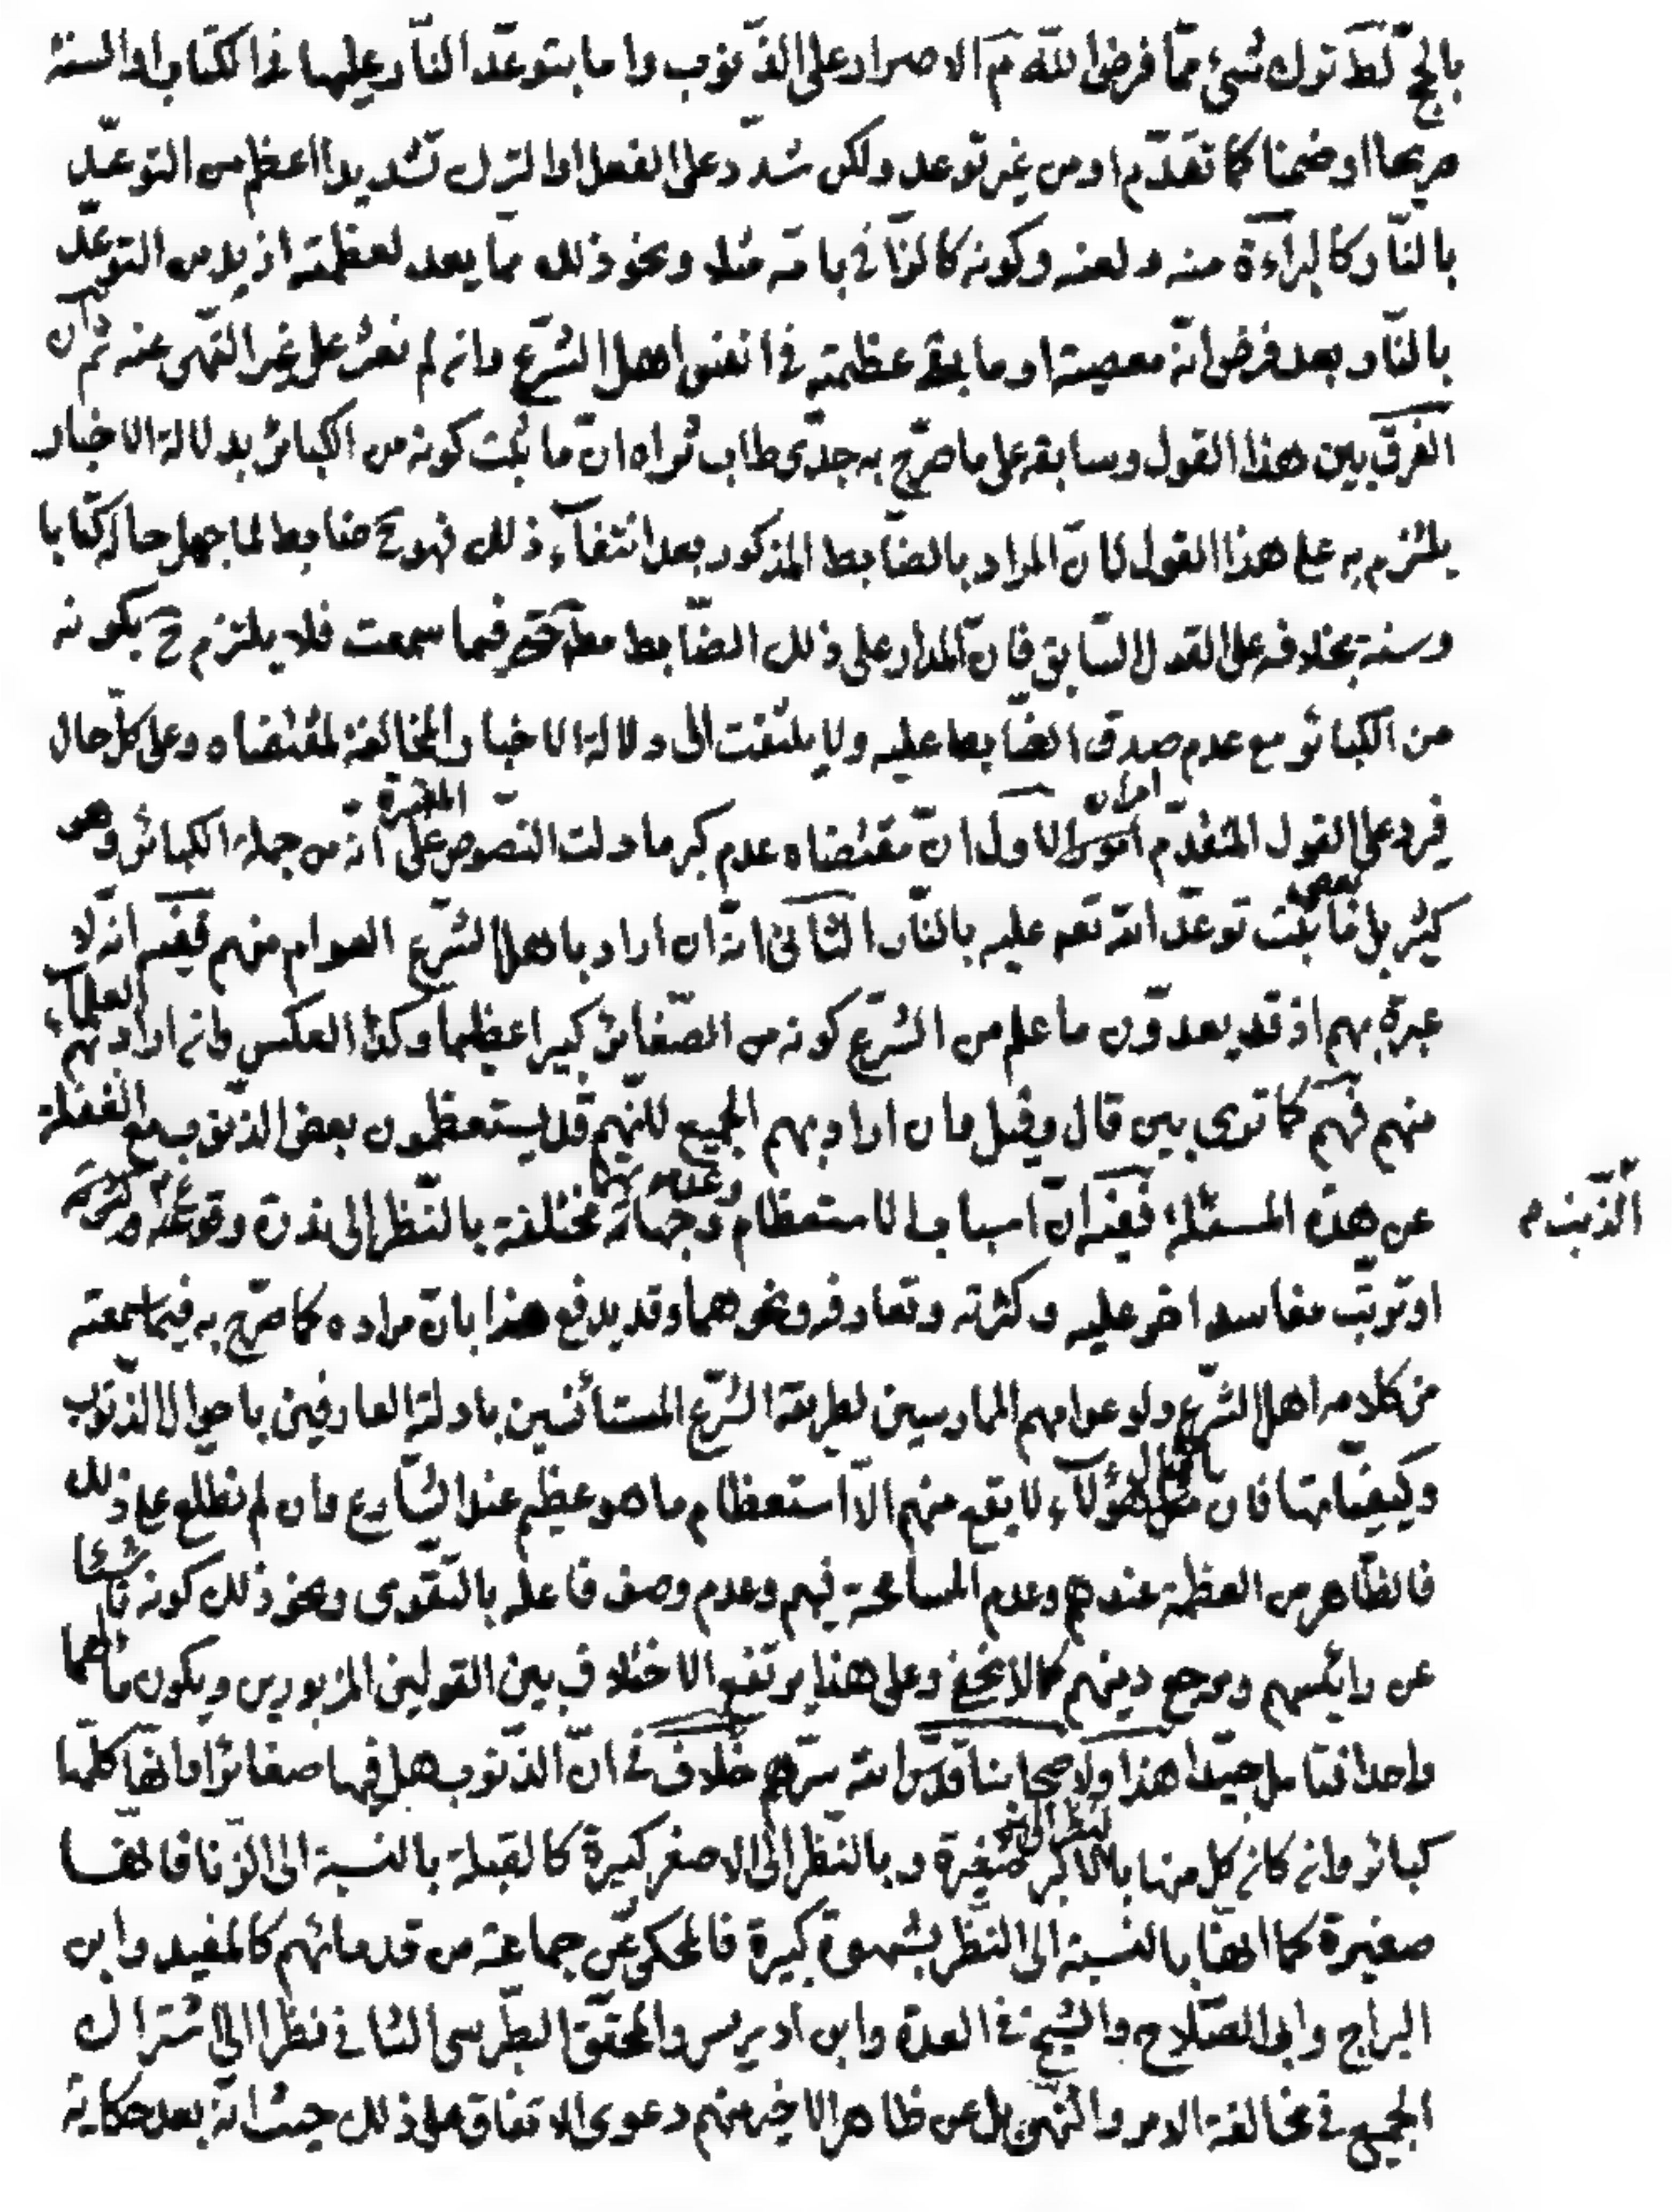 بالحجّ كك ترك شئ ممّا فرض الله ثم الاصرار على الذّنوب واما بتوعّد النّار عليها فى الكتاب او السنّة
صريحا او ضمنا كما تقدّم او من غير توعد ولكن شدّد على الفعل او الترك تشديدا اعظم من التوعّد
بالنّار كالبراءة منه ولعنه وكونه كالزّنا فى بامّه مثلا ونحو ذلك ممّا يعد لعظمته ازيد من التوعّد
بالنّار بعد فرض انّه معصية او ما بقى عظمته فى انفس اهل الشّرع وان لم نعثر على غير النّهى عنه ثم ان
الفرق بين هذا القول وسابقه على ما صرّح به جدّى طاب ثراه انّ ما ثبت كونه من الكبائر بدلالة الاخبار
يلتزم به على هذا القول لانّ المراد بالضّابط المذكور بعد انتفاء ذلك فهو ح ضابط لما جهل حاله كتابا
وسنة بخلافه على القول السّابق فانّ المدار على ذلك الضّابط فيما سمعت فلا يلتزم ح بكونه
من الكبائر مع عدم صدق الضّابط عليه ولا يلتفت الى دلالة الاخبار المخالفة لمقتضاه وعلى كلّ حال
فيرد على القول المتقدّم امران الاول انّ مقتضاه عدم كبر ما دلت النّصوص المعتبرة على انّه من جملة الكبائر وهو
كثير بل بعض ما ثبت توعّد الله تعه عليه بالنّار الثّانى انّه ان اراد باهل الشّرع العوام منهم ففيه انّه لا
عبرة بهم اذ قد يعدّون ما علم من الشّرع كونه من الصّغائر كبيرا عظيما وكذا العكس وان اراد بهم العلماء
منهم فهم كما ترى بين قال وقيل وان اراد بهم الجميع لكنّهم قد يستعظمون بعض الذّنوب مع الغفلة
عن هذه المسئلة ففيه انّ اسباب الاستعظام وجهاته مختلفة بالنّظر الى ندرة وقوعه وكثرته
الذّنب م
او ترتّب مفاسد اخر عليه وكثرته وتعارفه ونحوهما وقد يدفع هذا بانّ مراده كما صرّح به فيما سمعته
من كلامه اهل الشّرع ولو عوامهم الممارسين لطريقة الشّرع المستأنسين بادلته العارفين باحوال الذّنوب
وكيفيّاتها فان هؤلاء لا يقع منهم الّا استعظام ما هو عظيم عند الشّارع وان لم نطلع على ذلك
فالظّاهر من العظمة عندهم وعدم المسامحة فيهم وعدم وصف فاعله بالتّقوى ونحو ذلك كونه ناشئا
عن رائسهم ومرجع دينهم كما لا يخفى وعلى هذا يرتفع الاختلاف بين القولين المزبورين ويكون مالهما
واحدا فتامل جيّدا هذا ولاصحابنا قدّس الله سرّهم خلاف فى انّ الذّنوب هل فيها صغائر او انّها كلّها
كبائر وان كان كل منها بالنظر الى الاكبر صغيرة وبالنّظر الى الاصغر كبيرة كالقبلة بالنسبة الى الزّنا فانّها
صغيرة كما انّها بالنّسبة الى النّظر بشهوة كبيرة فالمحكى عن جماعة من قدمائهم كالمفيد وابن
البراج وابى الصّلاح والشّيخ فى العدة وابن ادريس والمحقّق الطّبرسى الثانى نظرا الى اشتراك
الجميع فى مخالفة الامر والنّهى بل عن ظاهر الاخير منهم دعوى الاتفاق على ذلك حيث انّه بعد حكاية